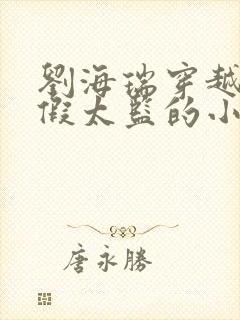 劉海瑞穿越
假太監的小
唐永勝